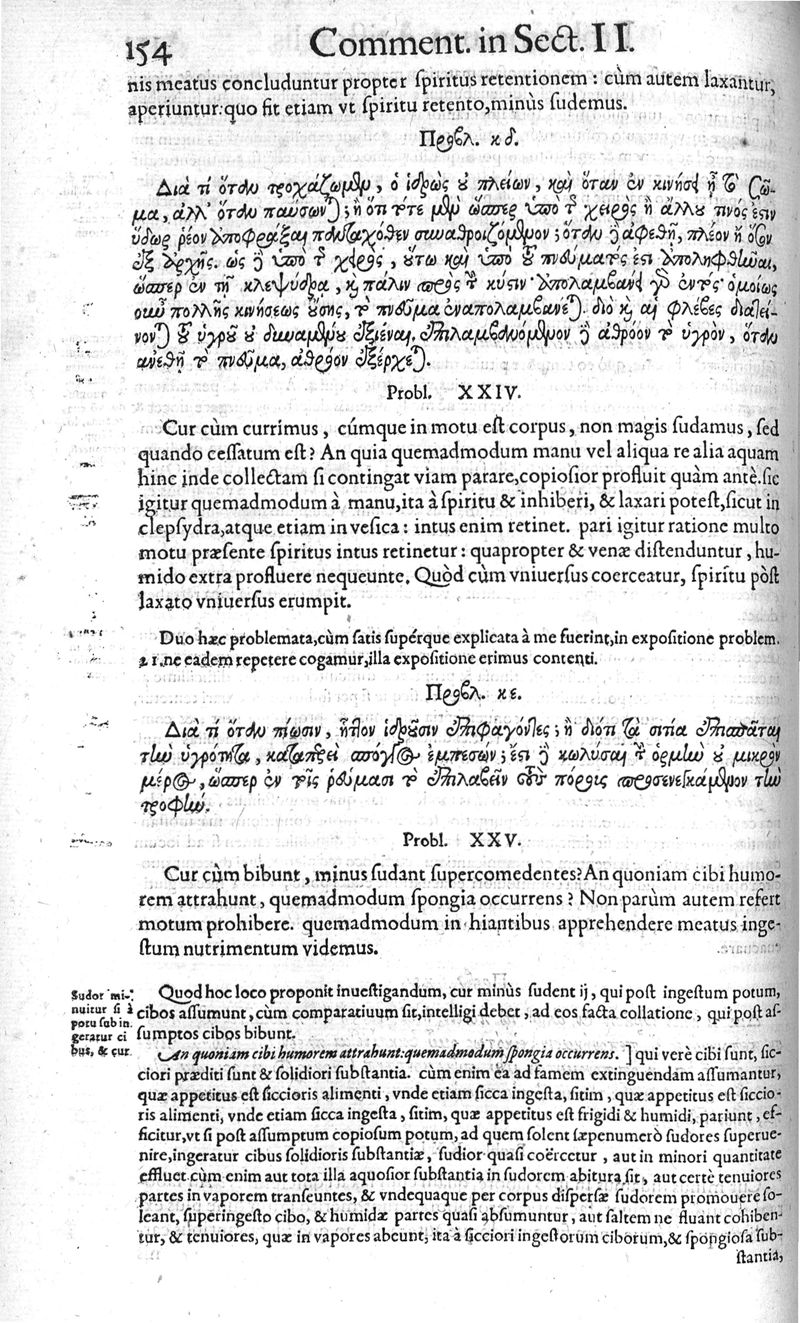 154 Comment. in Sect. II.
nis meatus concluduntur propter spiritus retentionem : cùm autem laxantur,
aperiuntur:quo fit etiam vt spiritu retento,minùs sudemus.
Προβλ. κδ.
Διὰ τί ὅταν τροχάζωμεν, ὁ ἱδρὼς οὐ πλείων, καὶ ὅταν ἐν κινήσει ᾖ τὸ σῶ-
μα, ἀλλ' ὅταν παύσωνται; ἢ ὅτι τότε μὲν ὥσπερ ὑπὸ τῆς χειρὸς ἢ ἄλλου τινός ἐστιν
ὕδωρ ῥέον ἀποφράξαι πολλαχόθεν συναθροιζόμενον; ὅταν δὲ ἀφεθῇ, πλέον ἢ ὅσον
ἐξ ἀρχῆς. ὡς δὲ ὑπὸ τῆς χειρὸς, οὕτω καὶ ὑπὸ τοῦ πνεύματος ἔστι ἀποληφθῆναι,
ὥσπερ ἐν τῇ κλεψύδρᾳ, καὶ πάλιν πρὸς τὴν κύστιν· ἀπολαμβάνει γὰρ ἐντός· ὁμοίως
οὖν πολλῆς κινήσεως οὔσης, τὸ πνεῦμα ἐναπολαμβάνεται. διὸ καὶ αἱ φλέβες διατεί-
νονται τοῦ ὑγροῦ οὐ δυναμένου ἐξιέναι. ἐπιλαμβανόμενον δὲ ἀθρόον τὸ ὑγρὸν, ὅταν
ἀνεθῇ τὸ πνεῦμα, ἀθρόον ἐξέρχεται.
Probl. XXIV.
Cur cùm currimus, cúmque in motu est corpus, non magis sudamus, sed
quando cessatum est? An quia quemadmodum manu vel aliqua re alia aquam
hinc inde collectam si contingat viam parare,copiosior profluit quàm antè.sic
igitur quemadmodum à manu,ita à spiritu & inhiberi, & laxari potest,sicut in
clepsydra,atque etiam in vesica : intus enim retinet. pari igitur ratione multo
motu præsente spiritus intus retinetur : quapropter & venæ distenduntur, hu-
mido extra profluere nequeunte. Quòd cùm vniuersus coerceatur, spiritu pòst
laxato vniuersus erumpit.
Duo hæc problemata,cùm satis supérque explicata à me fuerint,in expositione problem.
21.ne eadem repetere cogamur,illa expositione erimus contenti.
Προβλ. κε.
Διὰ τί ὅταν πίωσιν, ἧττον ἱδροῦσιν ἐπιφαγόντες; ἢ διότι τὰ σιτία ἐπισπᾶται
τὴν ὑγρότητα, καθαπερεὶ σπόγγος ἐμπεσών; ἔστι δὲ κωλύσαι τὴν ὁρμὴν οὐ μικρὸν
μέρος, ὥσπερ ἐν τοῖς ῥεύμασι τὸ ἐπιλαβεῖν τοὺς πόρους προσενεγκάμενον τὴν
τροφήν.
Probl. XXV.
Cur cùm bibunt, minus sudant supercomedentes?An quoniam cibi humo-
rem attrahunt, quemadmodum spongia occurrens ? Non parùm autem refert
motum prohibere. quemadmodum in hiantibus apprehendere meatus inge-
stum nutrimentum videmus.
Sudor mi-
nuitur si à
potu subin-
geratur ci
bus, & cur.
Quod hoc loco proponit inuestigandum, cur minùs sudent ij, qui post ingestum potum,
cibos assumunt, cùm comparatiuum sit,intelligi debet, ad eos facta collatione, qui post as-
sumptos cibos bibunt.
An quoniam cibi humorem attrahunt:quemadmodum spongia occurrens. ] qui verè cibi sunt, sic-
ciori præditi sunt & solidiori substantia. cùm enim ea ad famem extinguendam assumantur,
quæ appetitus est siccioris alimenti, vnde etiam sicca ingesta, sitim, quæ appetitus est siccio-
ris alimenti, vnde etiam sicca ingesta, sitim, quæ appetitus est frigidi & humidi, pariunt, ef-
ficitur,vt si post assumptum copiosum potum, ad quem solent sæpenumerò sudores superue-
nire,ingeratur cibus solidioris substantiæ, sudior quasi coërcetur, aut in minori quantitate
effluet cùm enim aut tota illa aquosior substantia in sudorem abitura sit, aut certè tenuiores
partes in vaporem transeuntes, & vndequaque per corpus dispersæ sudorem promouere so-
leant, superingesto cibo, & humidæ partes quasi absumuntur, aut saltem ne fluant cohiben-
tur, & tenuiores, quæ in vapores abeunt, ita à sicciori ingestorum ciborum,& spongiosa sub-
stantia,